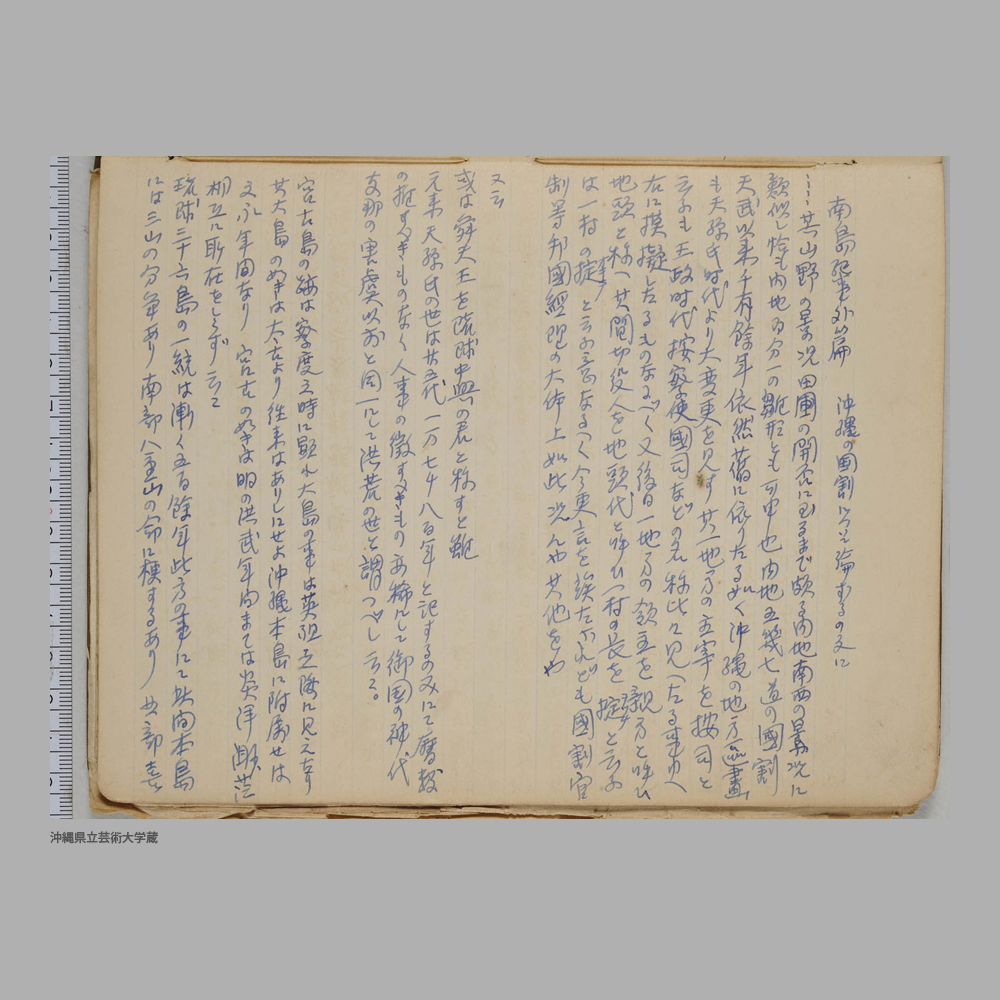 南島紀事外篇 沖縄の国割につき論ずるの文に
……其山野の景況田圃の開否に至るまで頗る内地南西の景况に
類似し恰も内地百分一の雛形とも可申也内地五畿七道の國割
天武以来千有餘年依然舊に依りたる如く沖縄の地方區畫
も天孫氏時代より大変更を見ず其一地方の主宰を按司と
云ふも王政时代按察使國司などの名称比々見へたる事中へ
右に摸擬したるものなるべく又後日一地方の領主を親方と呼ひ
地頭と称へ其間切役人を地頭代と呼ひ一村の長を掟と云ふ
は一村の掟と云ふ意なるべく今更言を竢たざれども國割官
制等邦國經理の大体上如此况んや其他をや
又云
或は舜天王を琉球中興の君と称すと雖
元来天孫氏の世は廿五代一万七千八百年と記するのみにて暦数
の推すべきものなく人事の徴すべきもの亦稀にして御国の神代
支那の唐虞以前と同一にして洪荒の世と謂つべし云々
宮古島の始は察度王時に顕れ大島の事は英祖王陵に見えたり
其大島の如きは太古より往来はありしにせよ沖縄本島に附属せは
文永年間なり 宮古の如きは明の洪武年間までは炎洋渺茫
相互に所在をしらず云々
琉球三十六島の一統は漸く五百餘年此方の事にて其間本島
には三山の分争あり南部八重山の命に梗するあり 其部長